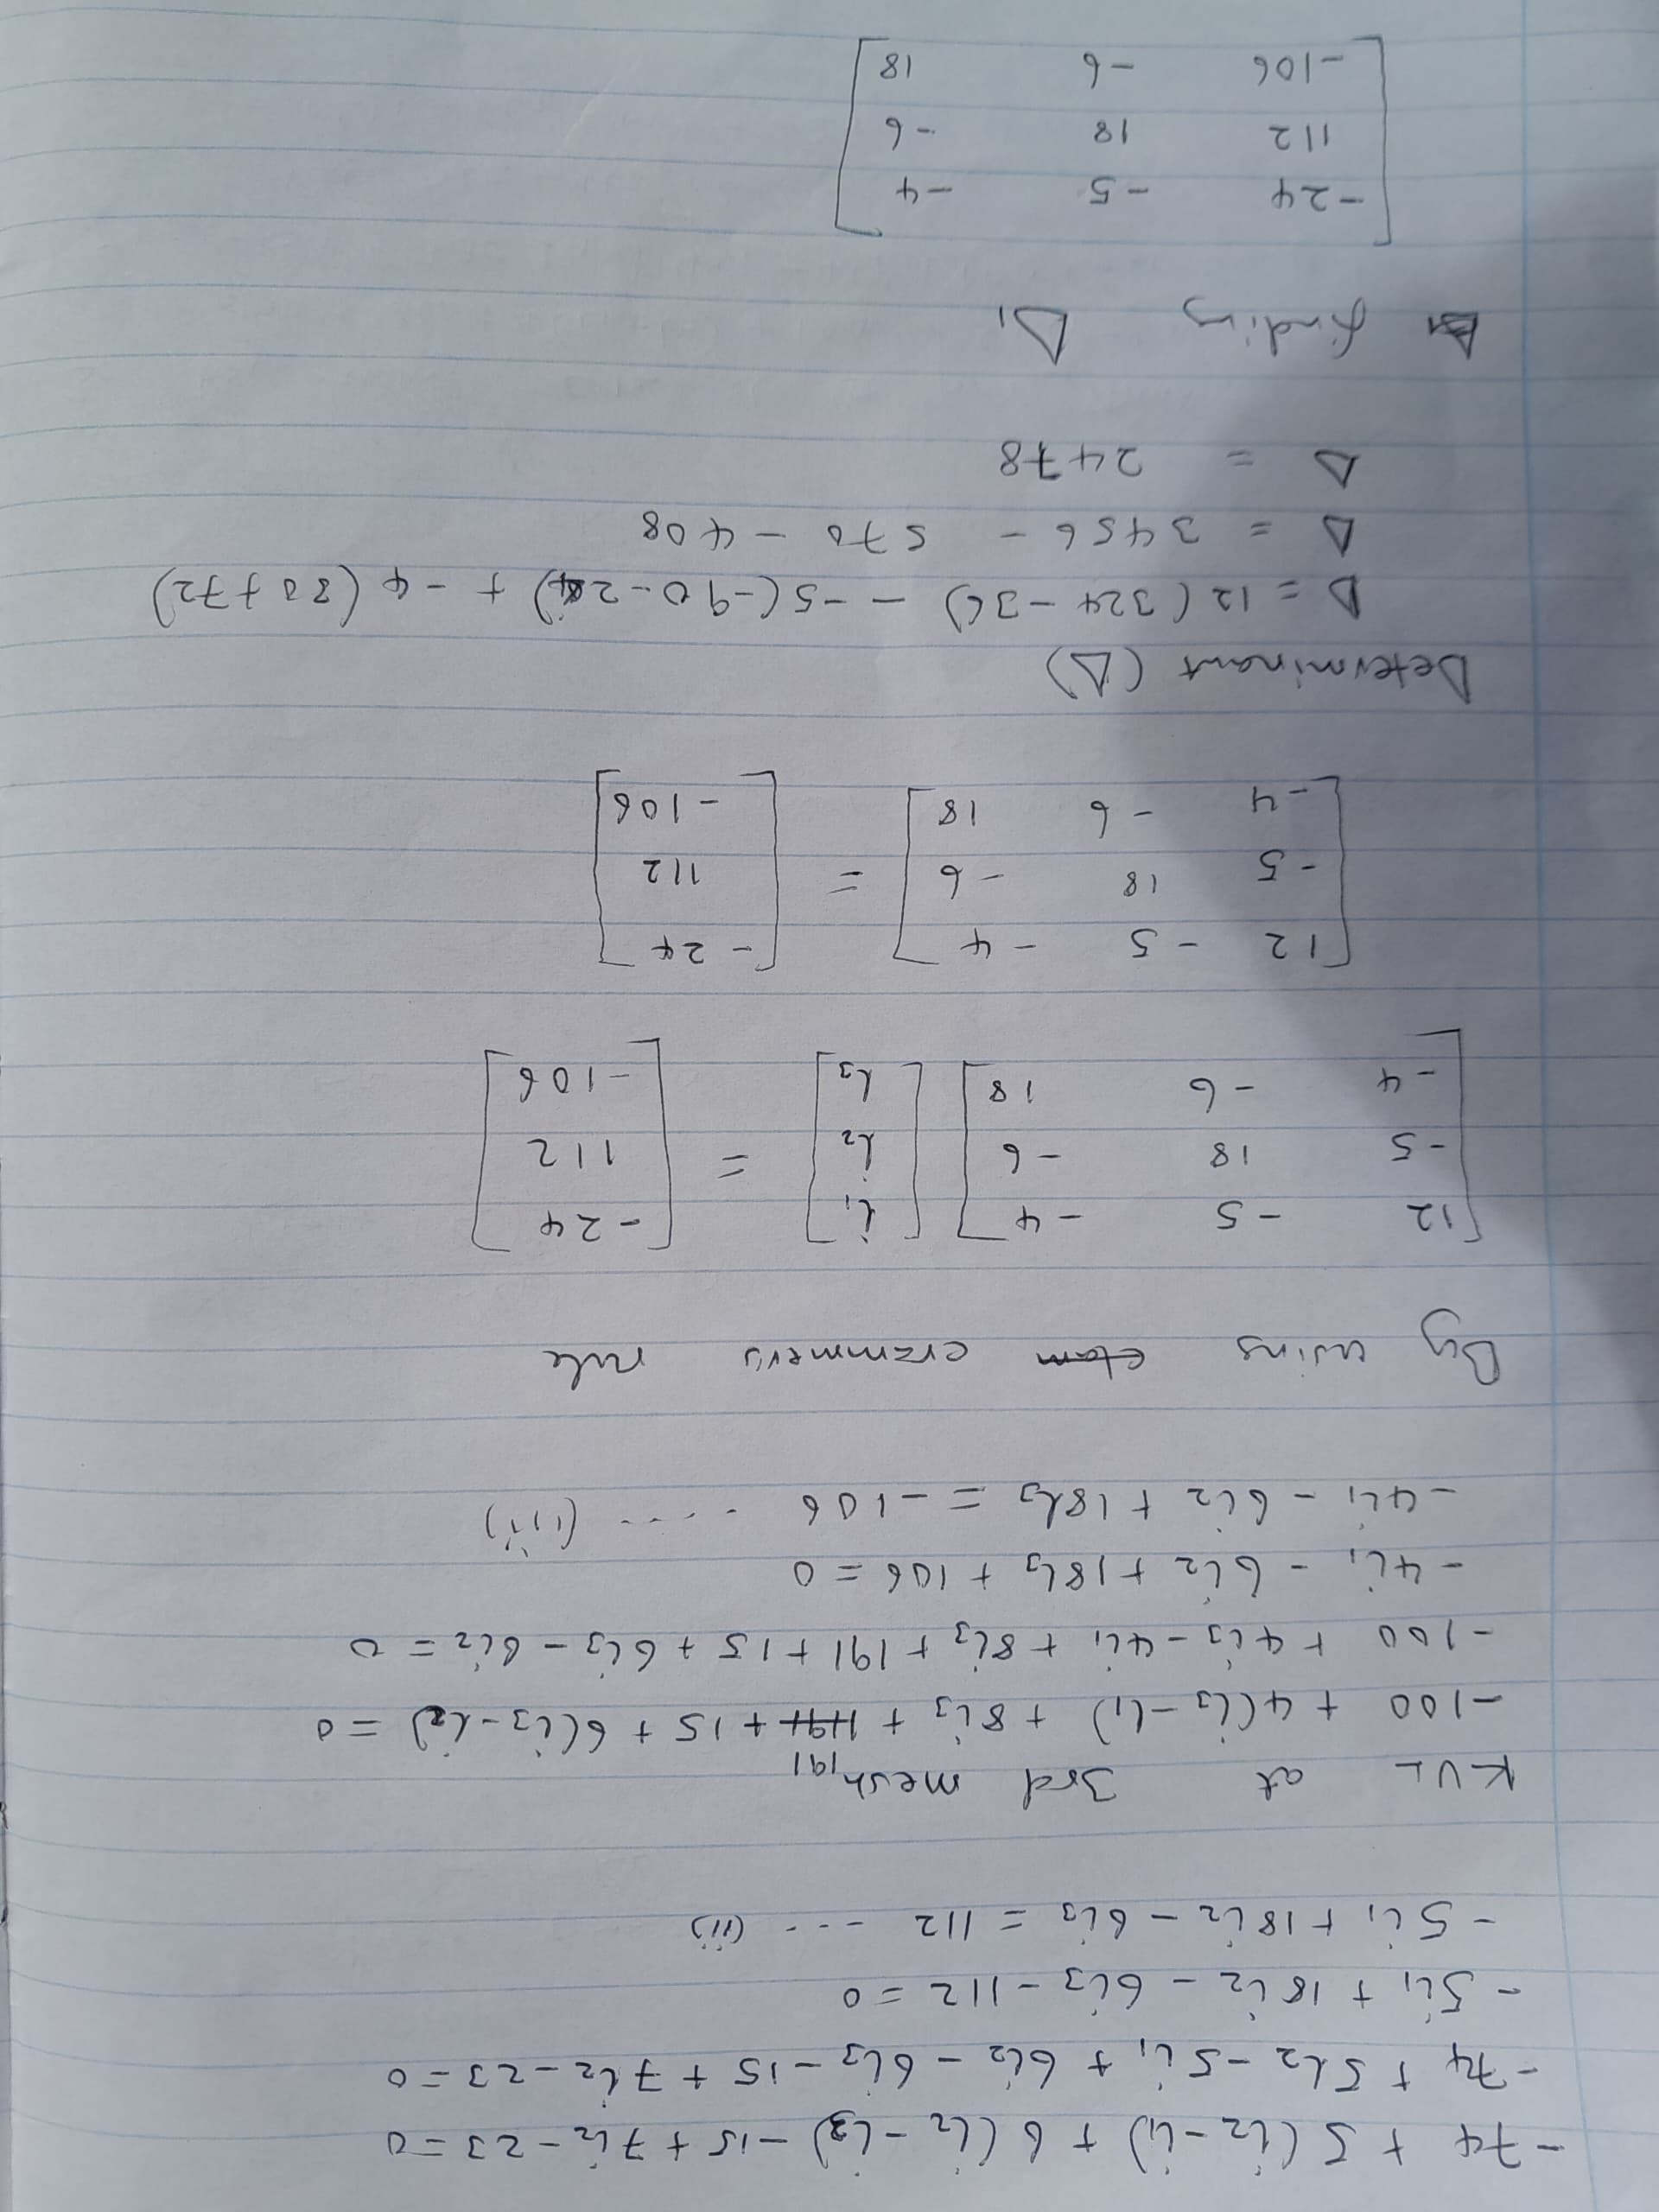 -74 + 5(i₂-i₁) + 6(i₂-i₃) -15 + 7i₂ -23 = 0
-74 + 5i₂ -5i₁ + 6i₂ - 6i₃ -15 + 7i₂ -23 = 0
-5i₁ + 18i₂ - 6i₃ - 112 = 0
-5i₁ + 18i₂ - 6i₃ = 112 --- (ii)
KVL at 3rd mesh
191
-100 + 4(i₃-i₁) + 8i₃ + + 15 + 6(i₃-i₂) = 0
-100 + 4i₃ -4i₁ + 8i₃ + 191 + 15 + 6i₃ - 6i₂ = 0
-4i₁ - 6i₂ + 18i₃ + 106 = 0
-4i₁ - 6i₂ + 18i₃ = -106 ---- (iii)
By using crammers rule
[12 -5 -4] [i₁] [-24]
[-5 18 -6] [i₂] = [112]
[-4 -6 18] [i₃] [-106]
[12 -5 -4] [-24]
[-5 18 -6] = [112]
[-4 -6 18] [-106]
Determinant (Δ)
Δ = 12(324-36) - -5(-90-24) + -4(30+72)
Δ = 3456 - 570 - 408
Δ = 2478
finding Δ₁
[-24 -5 -4]
[112 18 -6]
[-106 -6 18]